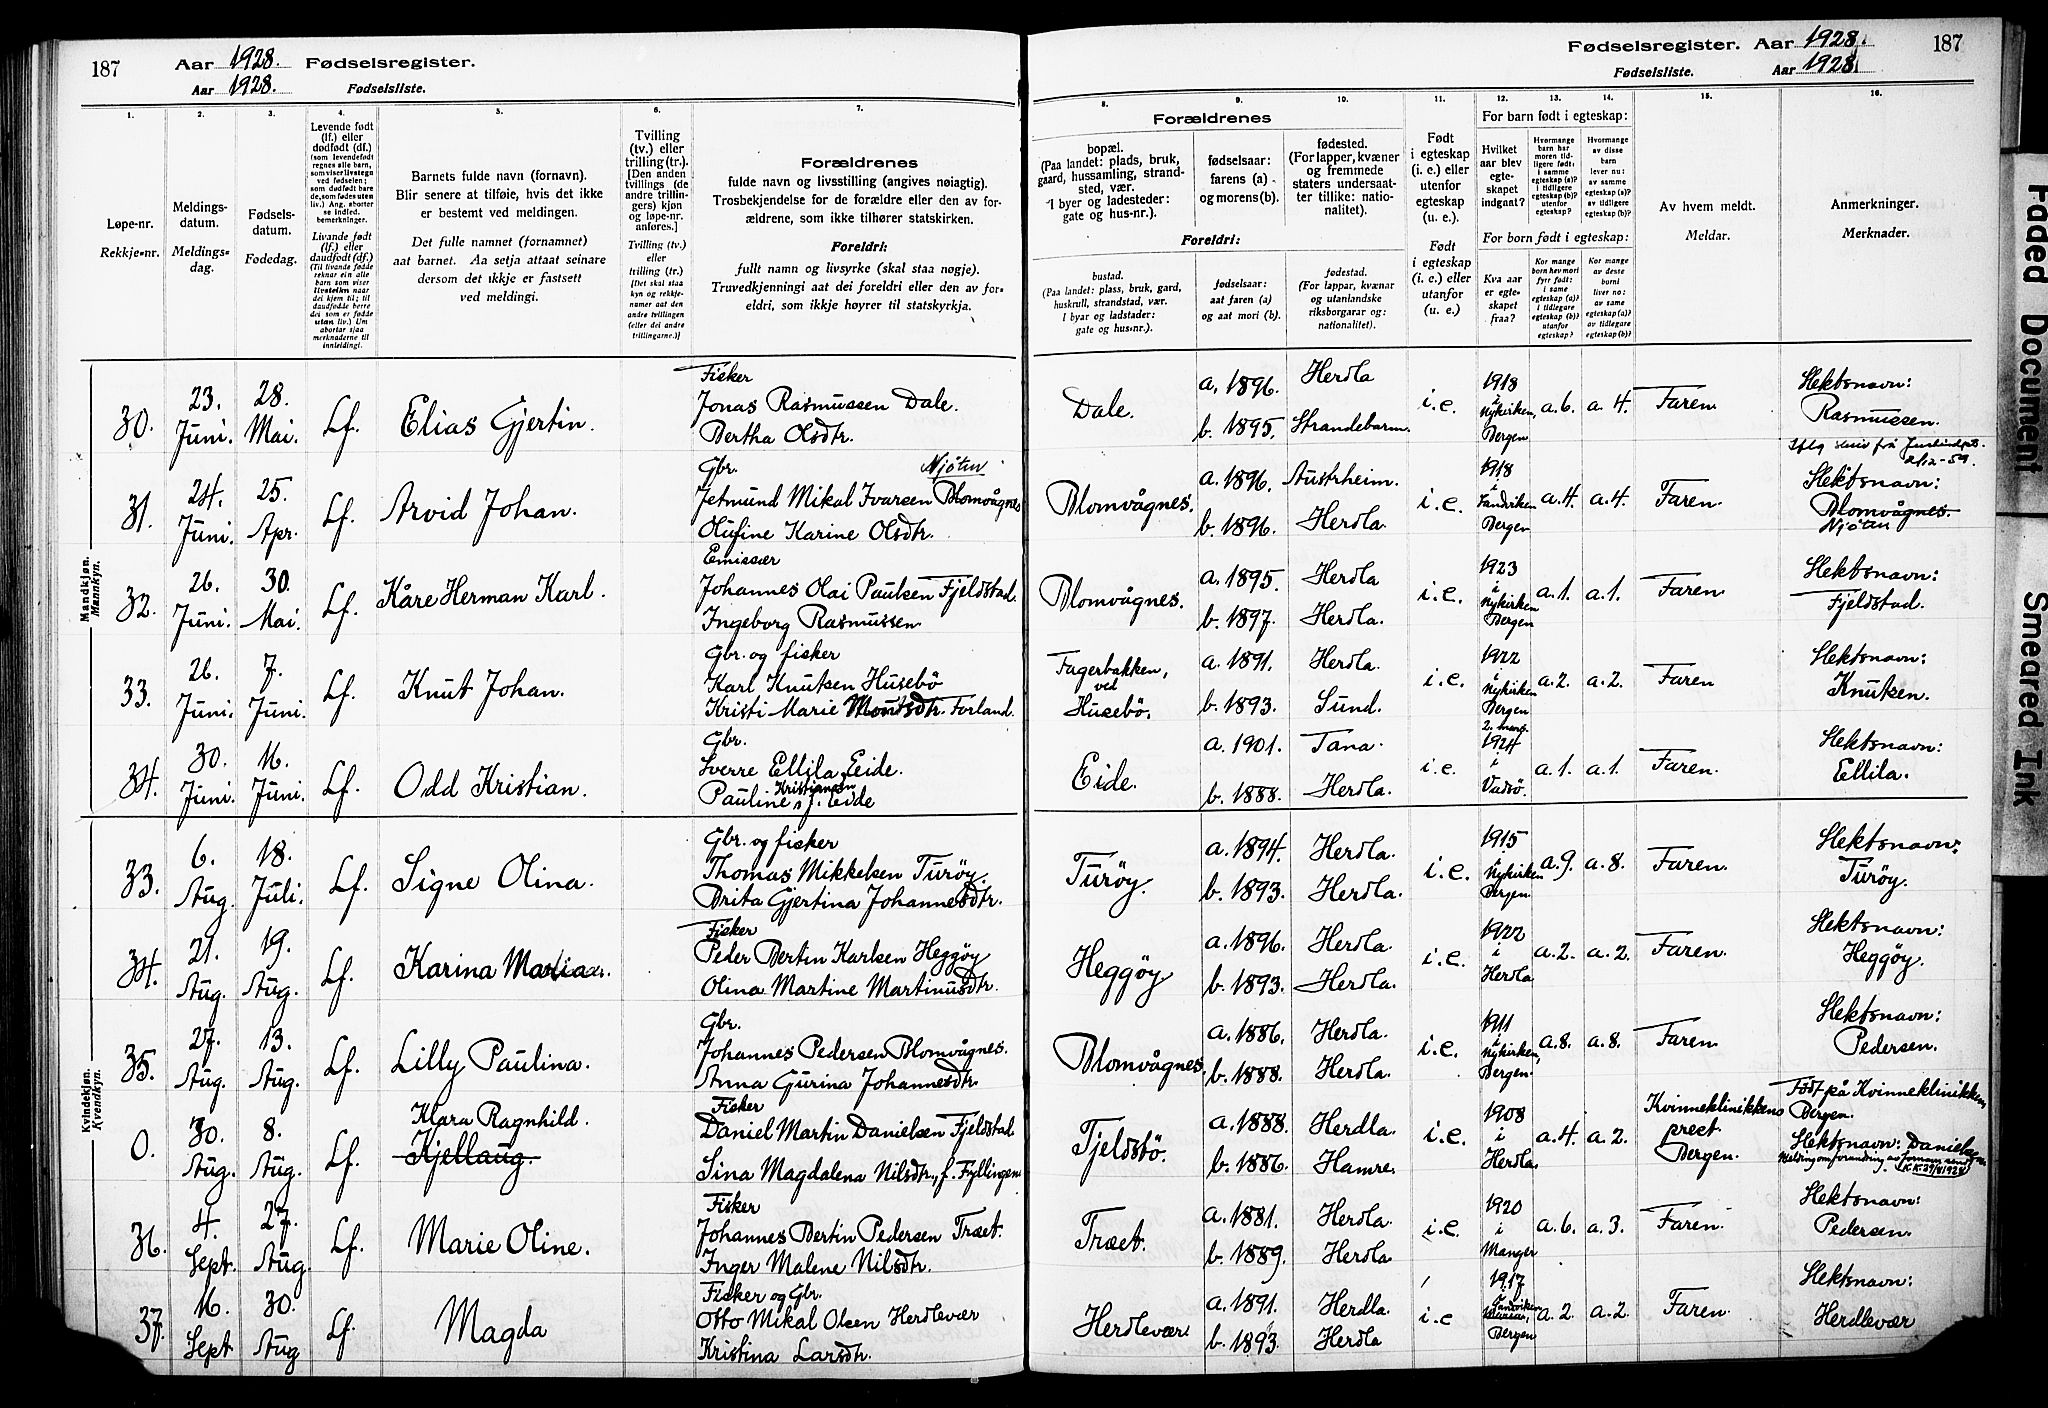 187
Aar 1928. Fødselsregister.
Aar 1928. Fødselsliste.
1.
Løpe-nr.
Rekkje-nr.
2.
Meldings-
datum.
Meldings-
dag.
3.
Fødsels-
datum.
Fødedag.
4.
Levende født
(lf.) eller
dødfødt (df.)
(som levendefødt
regnes alle barn,
som viser livstegn
ved fødselen;
som dødfødt bare
de, som fødes uten
liv.) Ang. aborter
se indled.
bemerkninger.
Livande født
(lf.) eller
daudfødt (df.)
(Til livande fødde
reknar ein alle
born som viser
livsteikn naar
dei kjem til; til
daudfødde berre
dei som er fødde
utan liv.) Um
abortar sjaa
merknaderne til
innleidingi.
5.
Barnets fulde navn (fornavn).
Blir senere at tilføie, hvis det ikke
er bestemt ved meldingen.
Det fulle namnet (fornamnet)
aat barnet. Aa setja attaat seinare
dersom det ikkje er fastsett
ved meldingi.
6.
Tvilling
(tv.) eller
trilling (tr.).
[Den anden
tvillings (de
andre trillin-
gers) kjøn
og løpe-nr.
anføres.]
Tvilling (tv.)
eller
trilling (tr.)
[Det skal staa
kyn og rekkje-
numer aat den
andre tvillingen
(eller dei andre
trillingarne.)]
7.
Forældrenes
fulde navn og livsstilling (angives nøiagtig).
Trosbekjendelse for de forældre eller den av for-
ældrene, som ikke tilhører statskirken.
Foreldri:
fullt namn og livsyrke (skal staa nøgje).
Truvedkjenningi aat dei foreldri eller den av for-
eldri, som ikkje høyrer til statskyrkja.
Mandkjøn.
Mannkyn.
30.
23.
Juni.
28.
Mai.
Lf.
Elias Gjertin.
Fisker
Jonas Rasmussen Dale.
Bertha Olsdtr.
31.
24.
Juni.
25.
Apr.
Lf.
Arvid Johan.
Gbr. Njøten
Jetmund Mikal Ivarsen Blomvågnes
Olufine Karine Olsdtr.
32.
26.
Juni.
30.
Mai.
Lf.
Kåre Herman Karl.
Emissær
Johannes Olai Paulsen Fjeldstad.
Ingeborg Rasmussen
33.
26.
Juni.
7.
Juni.
Lf.
Knut Johan.
Gbr. og fisker
Karl Knutsen Husebö
Kristi Marie Montsdtr. Forland.
34.
30.
Juni.
16.
Juni.
Lf.
Odd Kristian.
Gbr.
Sverre Ellila Eide.
Kristiansen
Pauline f. Eide
Kvindekjøn.
Kvendkyn.
33.
6.
Aug.
18.
Juli.
Lf.
Signe Olina.
Gbr. og fisker
Thomas Mikkelsen Turöy.
Brita Gjertina Johannesdtr.
34.
21.
Aug.
19.
Aug.
Lf.
Karina Maria
Fisker
Peder Bertin Karlsen Heggöy
Olina Martine Martinusdtr.
35.
27.
Aug.
13.
Aug.
Lf.
Lilly Paulina.
Gbr.
Johannes Pedersen Blomvågnes.
Anna Gurina Johannesdtr.
0.
30.
Aug.
8.
Aug.
Lf.
Klara Ragnhild.
Kjellaug.
Fisker
Daniel Martin Danielsen Fjeldstad
Sina Magdalena Nilsdtr., f. Fyllingen
36.
4.
Sept.
27.
Aug.
Lf.
Marie Oline.
Fisker
Johannes Bertin Pedersen Træet.
Inger Malene Nilsdtr.
37.
16.
Sept
30.
Aug
Lf.
Magda
Fisker og Gbr.
Otto Mikal Olsen Herdlevær
Kristina Larsdtr.
Fødselsregister. Aar 1928. 187
Fødselsliste. Aar 1928.
Forældrenes
8.
bopæl.
(Paa landet: plads, bruk,
gaard, hussamling, strand-
sted, vær.
I byer og ladesteder:
gate og hus-nr.).
9.
fødselsaar:
farens (a)
og morens (b).
10.
fødested.
(For lapper, kvæner
og fremmede
staters undersaat-
ter tillike: natio-
nalitet).
Foreldri:
bustad.
(Paa landet: plass, bruk, gard,
huskrull, strandstad, vær.
I byar og ladstader:
gate og hus-nr.).
fødselsaar:
aat faren (a)
og aat mori (b).
fødestad.
(For lappar, kvænar
og utanlandske
riksborgarar og:
nationalitet).
11.
Født
i egteskap
(i. e.) eller
utenfor
egteskap
(u. e.).
Født
i egteskap
(i. e.) eller
utanfor
(u. e.).
For barn født i egteskap:
12.
Hvilket
aar blev
egte-
skapet
indgaat?
13.
Hvormange
barn har
moren tid-
ligere født:
i samme
egteskap (a)?
i tidligere
egteskap (b)?
utenfor
egteskap?
14.
Hvormange
av disse
barn
lever nu:
av samme
egteskap (a)?
av tidligere
egteskap (b)?
For born født i egteskap:
Kva aar
er egte-
skapet
fraa?
Kor mange
born hev mori
fyrr født:
i same
egteskap (a)?
i tidlegare
egteskap (b)?
utanfor
egteskap?
Kor mange
av desse
borni
liver no:
av same
egteskap (a)?
av tidlegare
egteskap (b)?
15.
Av hvem meldt.
Meldar.
16.
Anmerkninger.
Merknader.
Dale.
a. 1896.
b. 1895.
Herdla
Strandebarm.
i.e.
1918
i
Nykirken,
Bergen
a. 6.
a. 4.
Faren.
Slektsnavn:
Rasmussen.
Blomvågnes.
a. 1896.
b. 1896.
Austrheim.
Herdla.
i.e.
1918
i
Sandviken
Bergen
a. 4.
a. 4.
Faren.
Slektsnavn:
Blomvågnes.
Njøten
Blomvågnes.
a. 1895.
b. 1897.
Herdla
Herdla.
i.e.
1923
i
Nykirken
Bergen
a. 1.
a. 1.
Faren
Slektsnavn:
Fjeldstad.
Fagerbakken,
ved
Husebö.
a. 1891.
b. 1893.
Herdla.
Sund.
i.e.
1922
i
Nykirken
Bergen
a. 2.
a. 2.
Faren
Slektsnavn:
Knutsen.
Eide.
a. 1901.
b. 1888.
Tana.
Herdla.
i.e.
1924
i
Vadsö.
a. 1.
a. 1.
Faren.
Slektsnavn:
Ellila.
Turöy.
a. 1894.
b. 1893.
Herdla.
Herdla.
i.e.
1915
i
Nykirken
Bergen
a. 9.
a. 8.
Faren.
Slektsnavn:
Turöy.
Heggöy
a. 1896.
b. 1893.
Herdla.
Herdla.
i.e.
1922
i
Herdla
a. 2.
a. 2.
Faren.
Slektsnavn:
Heggöy.
Blomvågnes
a. 1886.
b. 1888.
Herdla.
Herdla.
i.e.
1911
i
Nykirken,
Bergen.
a. 8.
a. 8.
Faren
Slektsnavn:
Pedersen.
Tjeldstö.
a. 1888.
b. 1886.
Herdla.
Hamre.
i.e.
1908
i
Herdla
a. 4.
a. 2.
Kvinneklinikkens
prest
Bergen.
Født på Kvinneklinikken
Bergen.
Slektsnavn: Danielsen
Melding om forandring av fornavn
Træet.
a. 1881.
b. 1889.
Herdla.
Herdla
i.e.
1920
i
Manger
a. 6.
a. 3.
Faren
Slektsnavn:
Pedersen.
Herdlevær
a. 1891.
b. 1893.
Herdla
Herdla
i.e
1917
i
Sandviken
Bergen
a. 2.
a. 2.
Faren.
Slektsnavn:
Herdlevær
Faded Document
Smeared Ink